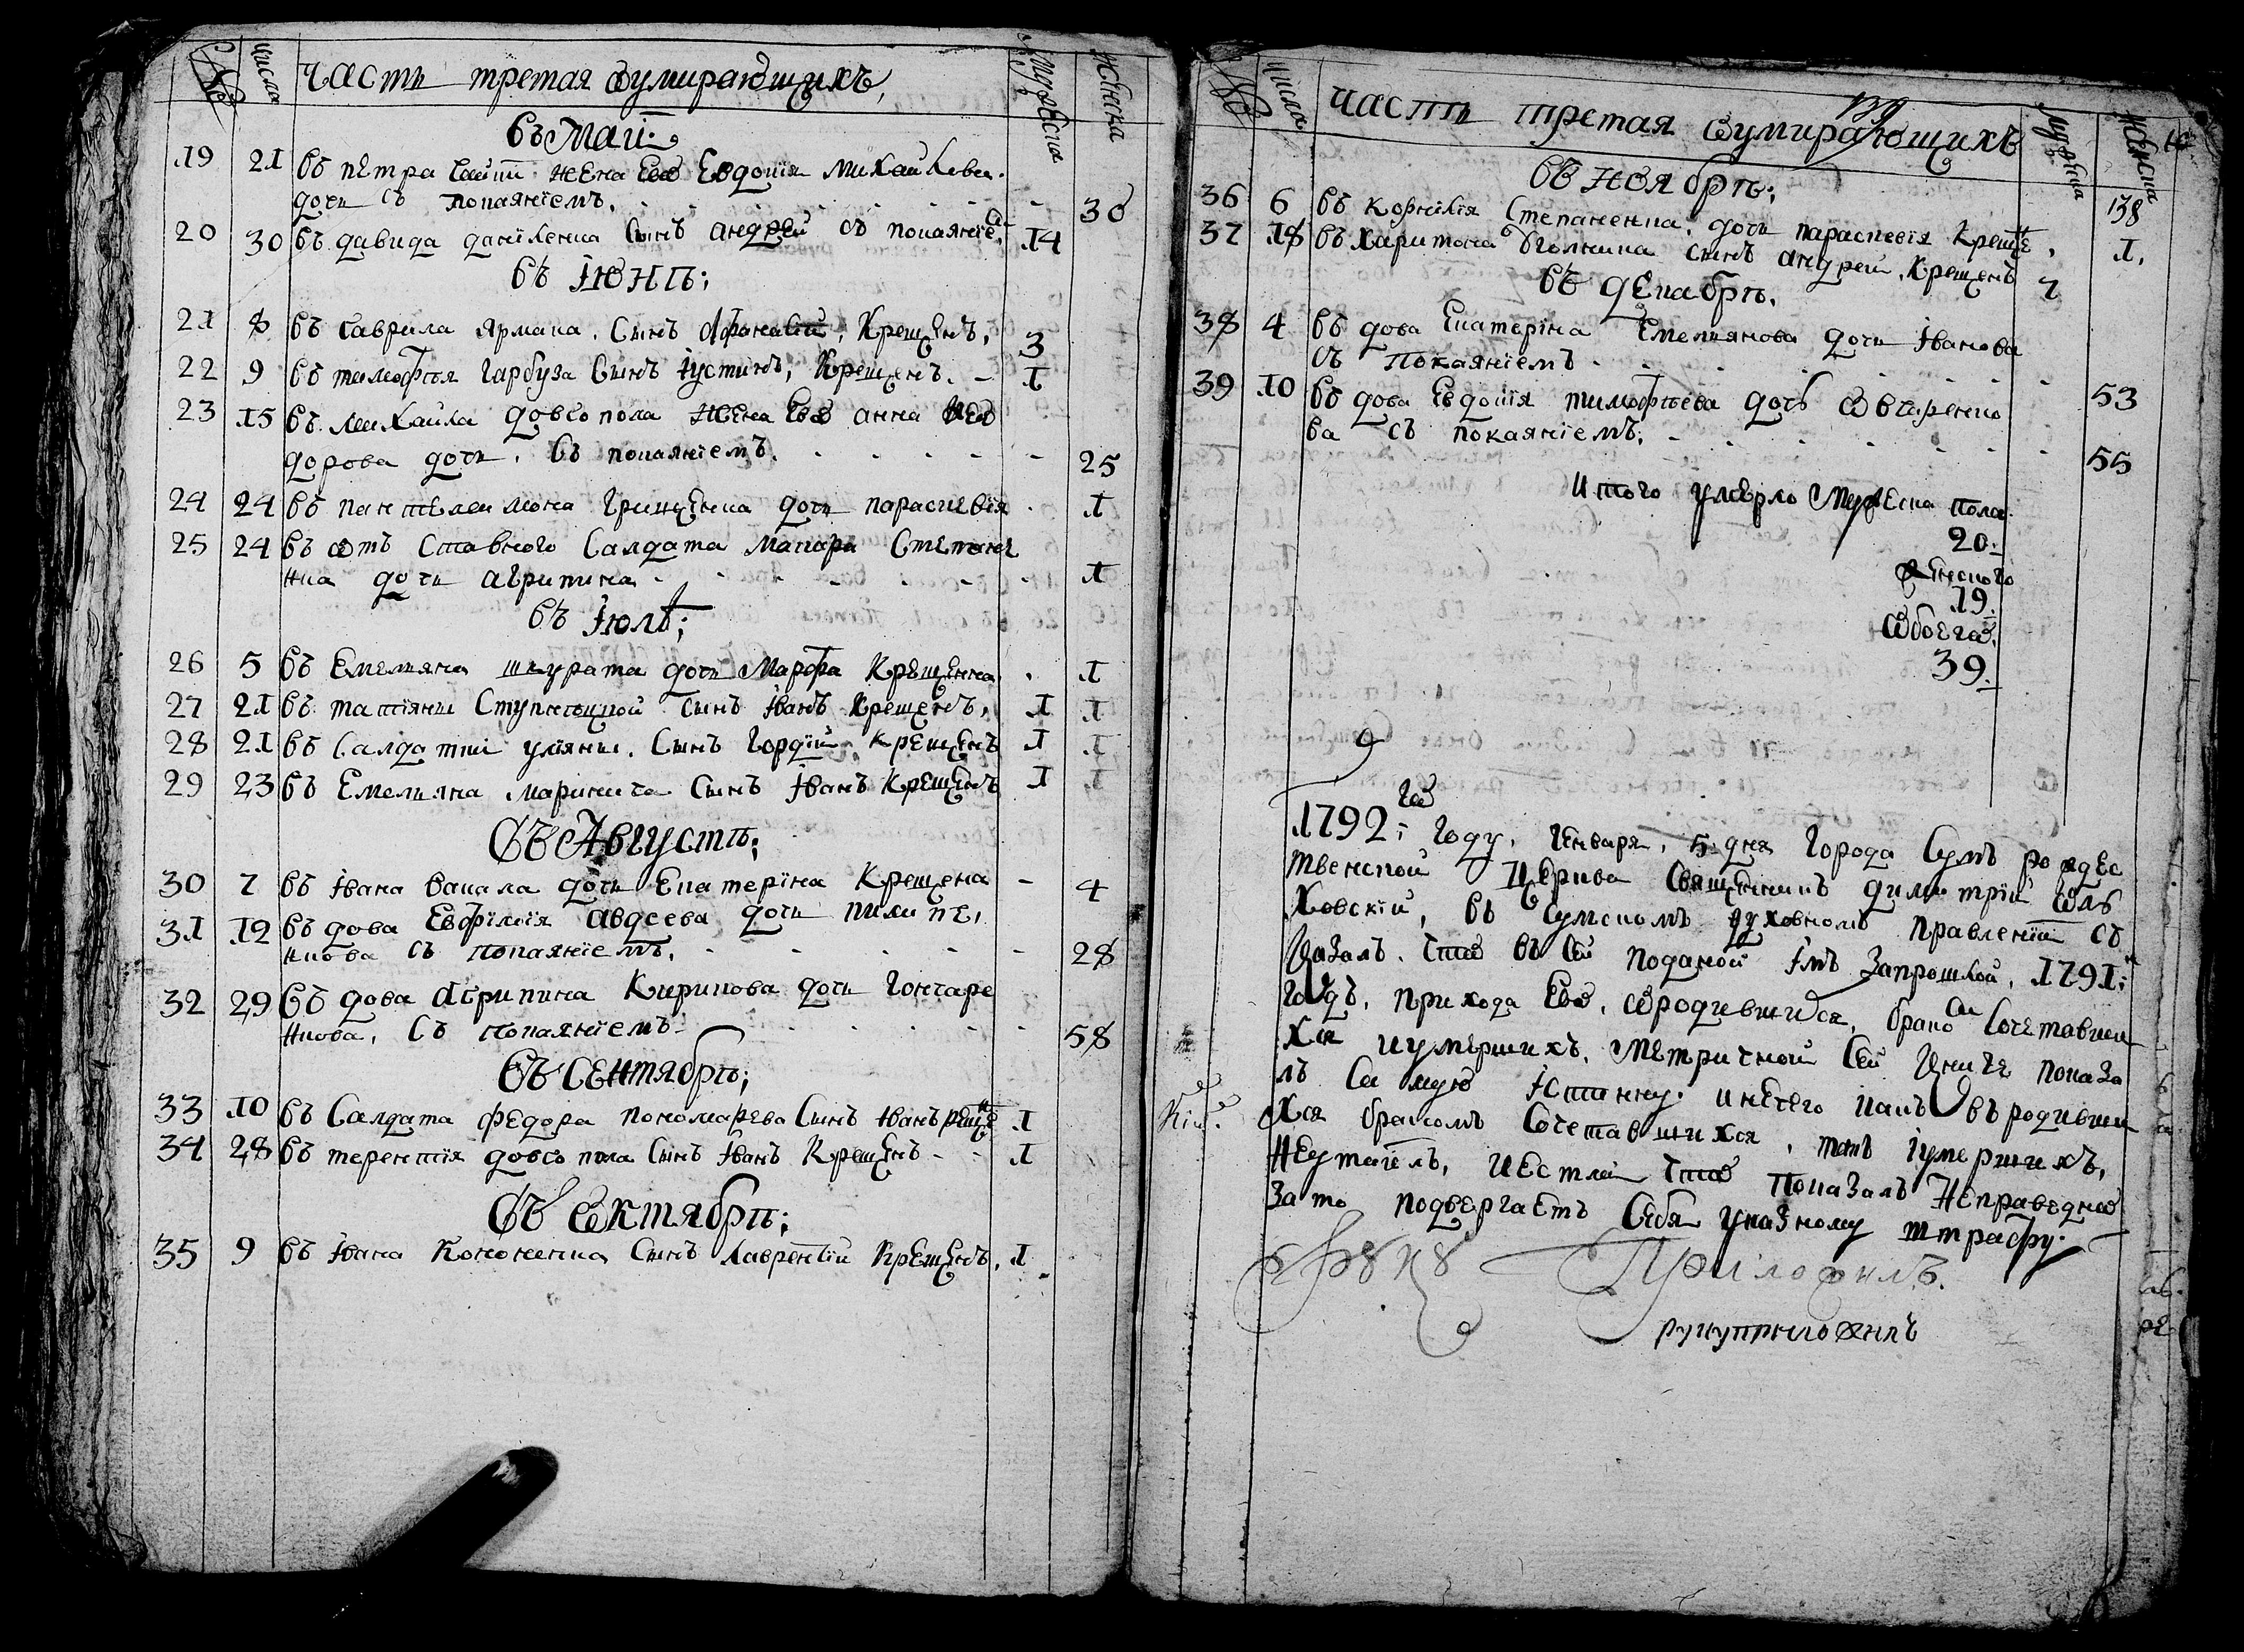 № числа Часть третая ѡумирающихъ, мужеска женска
Въ Маиі
19 21 въ петра жена Его Евдокія михайлова
дочь съ покаяніемъ. 30
20 30 въ давида даніленка сынъ андрей съ покаяніе 14
въ Іюнѣ;
21 8 въ гаврила ярмака. сынъ Афанасій, Крещенъ, 3
22 9 въ тимофѣя гарбуза сынъ іустинъ, Крещенъ. 1
23 15 въ михайла довгопола жена Его анна Ѳео
дорова дочь, съ покаяніемъ. 25
24 24 въ пантелеимона грищенка дочь параскевія 1
25 24 въ ѡтъ ставного салдата макара Степане
нка дочь агрипина 1
въ Іюлѣ;
26 5 въ Емелияна шкурата дочь Марфа Крещенна 1
27 21 въ татіяны сынъ іванъ крещенъ, 1
28 21 въ салдатки уліяны. сынъ гордій, крещенъ 1
29 23 въ Емелияна маринича сынъ іванъ Крещенъ 1
Въ Августѣ;
30 7 въ івана вакала дочь Екатеріна Крещена 4
31 12 въ дова Евфімія авдеева дочь пилипѣ,
нкова съ покаяніемъ. 28
32 29 въ дова Агрипина Кирикова дочь гончаре
нкова, съ покаяніемъ 58
Въ Сентябрѣ;
33 10 въ салдата федора пономарева сынъ іванъ 1
34 28 въ терентія довгопола сынъ іванъ Крещенъ 1
Въ Ѡктябрѣ;
35 9 въ івана Кононенка сынъ лаврентій крещенъ, 1
№ числа часть третая ѡумирающихъ мужеска женска
въ ноябрѣ; 138
36 6 въ корнілія Степаненка, дочь параскевія Креще 1,
37 18 въ харитона сынъ андрей, Крещенъ 7
въ декабрѣ.
38 4 въ дова Екатеріна Емелиянова дочь іванова
съ покаяніемъ 53
39 10 въ дова Евдокія тимофѣева дочь
ва съ покаяніемъ. 55
итого умерло мужеска пола
20.
женского
19.
ѡбоега.
39.
1792: го году. генваря, 5 дня города Сумъ рождес
твенской церкви священникъ димитрій
ховскій, въ сумскомъ духовномъ правленіи съ
казалъ. что въ сей поданой імъ запрошлой, 1791:
годъ, прихода Его, ѡродившихся, брако сочетавши
хся иумершихъ. Метричной сей книгѣ показа
лъ самую істинну. инечего какъ въродивши
хся бракомъ сочетавшихся, такъ іумершихъ,
неутаилъ, иестли что показалъ неправедно
зато подвергаетъ себя указному штрафу.
руку приложилъ.
рукуприложилъ